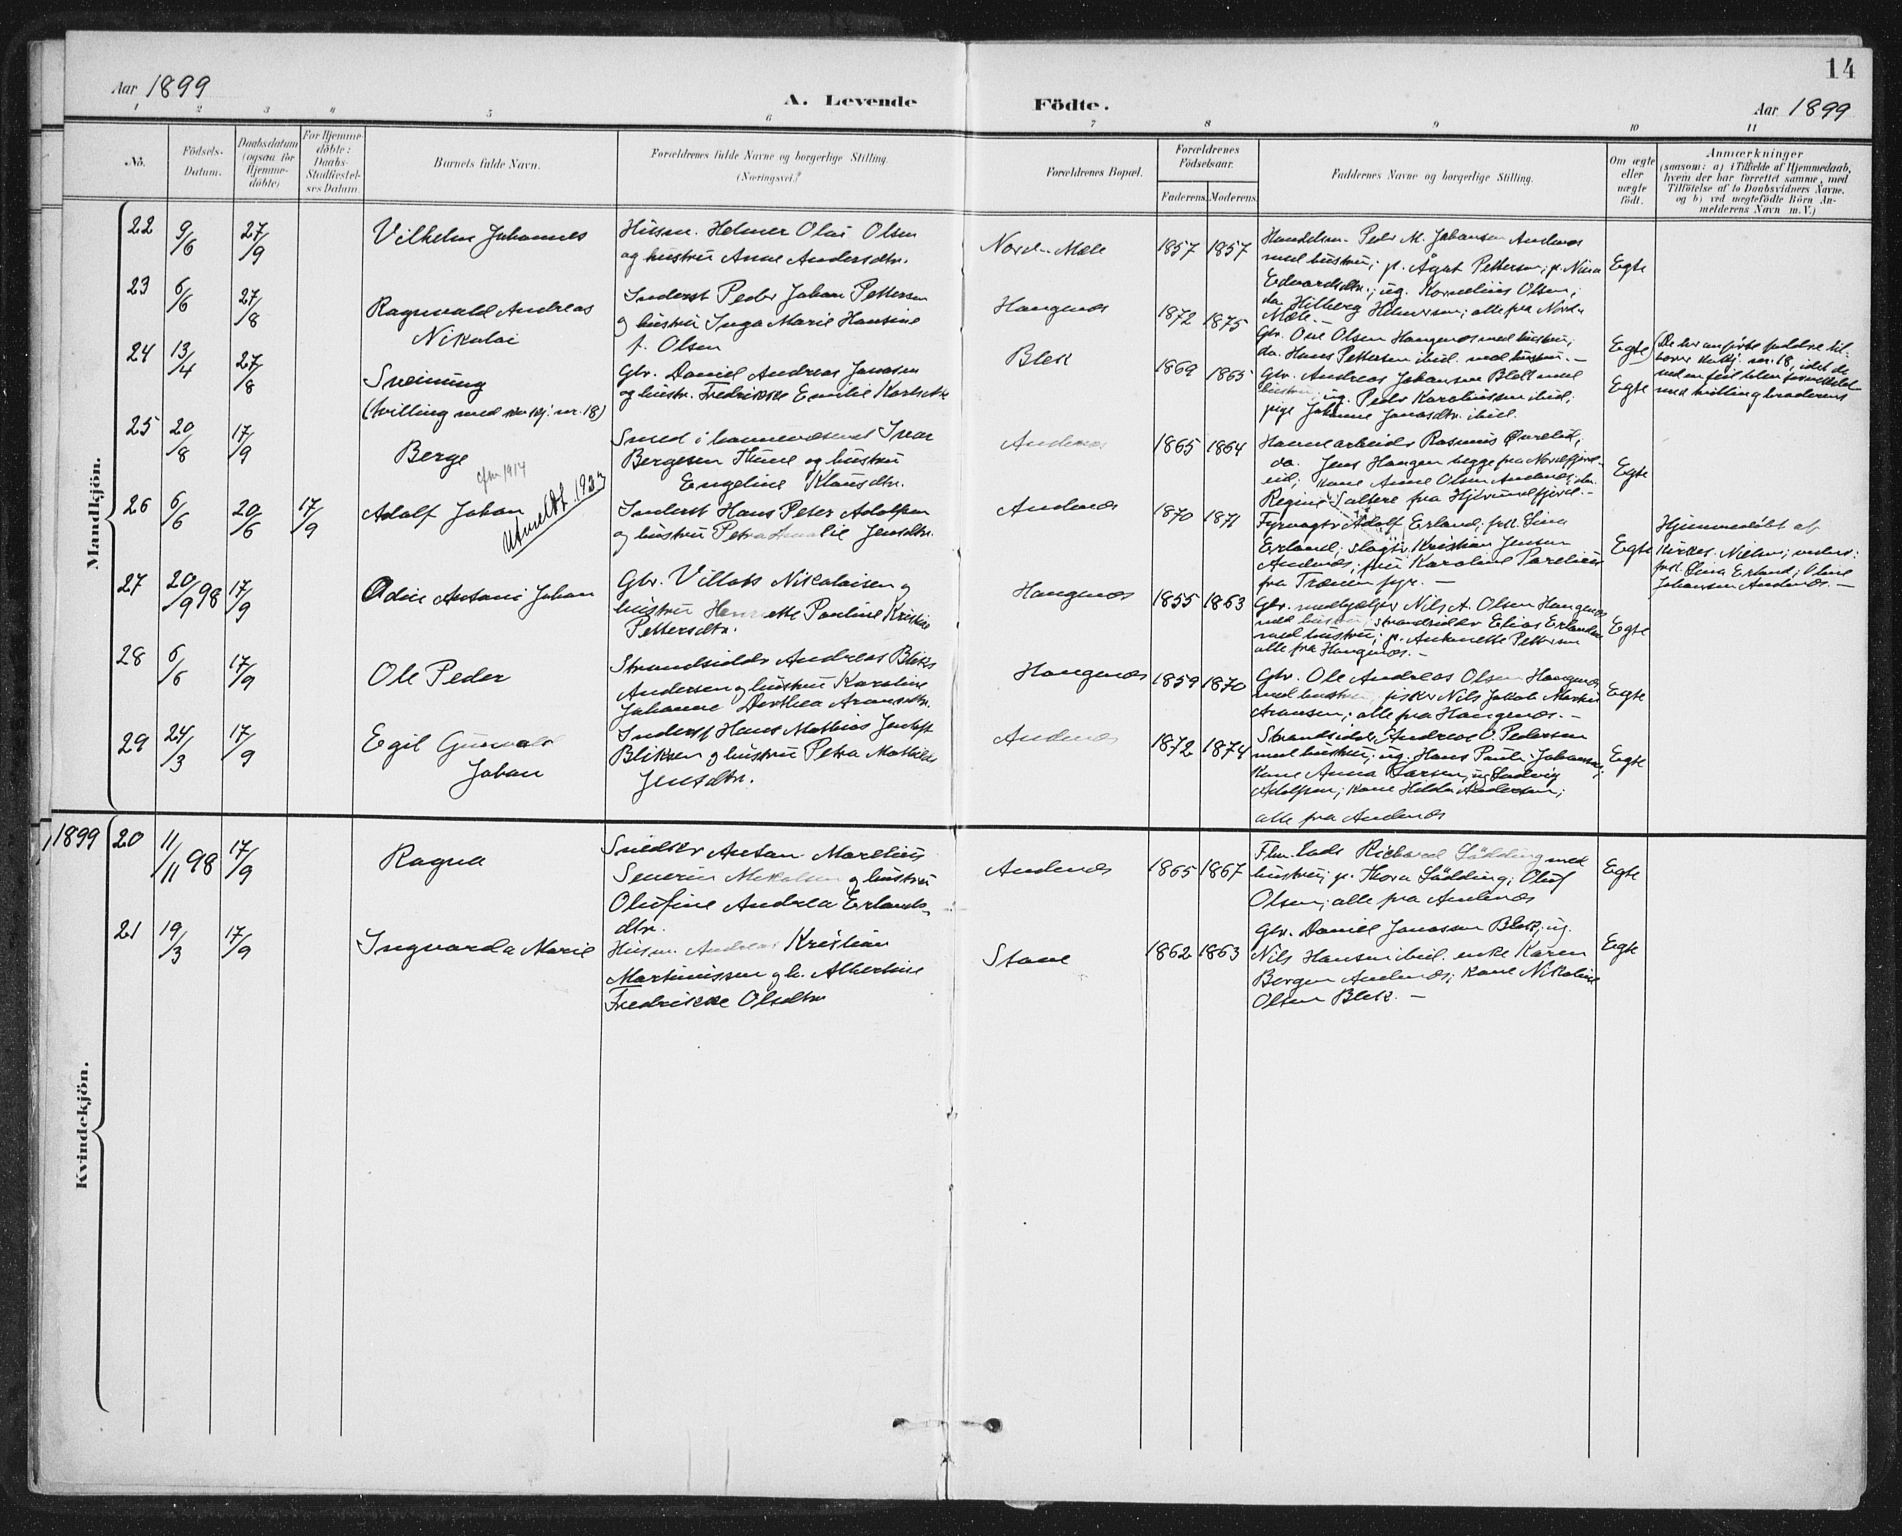 Aar 1899
A. Levende Födte.
14
Aar 1899
1 2 3 4 5 6 7 8 9 10 11
No.
Födsels-
Datum.
Daabsdatum
(ogsaa for
Hjemme-
döbte)
For Hjemme-
döbte:
Daabs-
Stadfæstel-
ses Datum.
Barnets fulde Navn.
Forældrenes fulde Navne og borgerlige Stilling.
(Næringsvei.)
Forældrenes Bopæl.
Forældrenes
Födselsaar.
Faderens. Moderens.
Faddernes Navne og borgerlige Stilling.
Om ægte
eller
uægte
födt.
Anmærkninger
(saasom: a) i Tilfælde af Hjemmedaab,
hvem der har forrettet samme, med
Tilföielse af to Daabsvidners Navne,
og b) ved uægtefödte Börn An-
melderens Navn m. V.)
Mandkjön.
22 9/6 27/9 Vilhelm Johannes
Husm. Helmer Olai Olsen
og hustru Anne Andersdtr.
Nord-Mele 1857 1857
Handelsm. Peder M. Johansen Andenes
med hustru; p. Ågot Pettersen; p. Nina
Edvardsdtr.; ug. Kornelius Olsen;
da. Hilberg Helmersen; alle fra Nord-
Mele.
Egte
23 6/6 27/8 Ragnvald Andreas
Nikolai
Inderst Peder Johan Pettersen
og hustru Inga Marie Hansine
f. Olsen
Haugenes 1872 1875
Gbr. One Olsen Haugenes med hustru;
da. Hans Pettersen ibid. med hustru. -
Egte
24 13/4 27/8 Sveinung
(tvilling med nr. 18)
Gbr. Daniel Andreas Jonassen
og hustr. Fredrikke Emilie Karlsdtr
Blek 1869 1865
Gbr. Andreas Johansen Blek med
hustru; ug. Peder Karoliussen ibid;
pige Johanne Jonasdtr. ibid.
Egte
(De her anförte faddre til-
hører nr. 18, idet de
ved en feil blev forvekslet
med tvillingbroderens
25 20/8 17/9 Berge
Smed i havnevæsenet Ivar
Bergesen Thune og hustru
Engeline Klausdtr.
Andenes 1865 1864
Havnearbeider Rasmus
da. Jens Haugen begge fra Nordfjord-
eid; kone Anne Olsen Andenes; da.
Regine Saltere fra
Egte
26 6/6 20/6 17/9 Adolf Johan
1914
Utmeldt 1923
Inderst Hans Peter Adolfsen
og hustru Petra Amalie Jensdtr.
Andenes 1870 1871
Fyrvogter Adolf Erland; frk. Lina
Erland; Kristian Jensen
Andenes; frue Karoline Parelius
fra Trænen fyr. -
Egte
Hjemmedöbt af
Kirkes. Nielsen; vidner:
frk. Lina Erland; Oline
Johansen Andenes. -
27 20/9 98 17/9 Odin Antoni Johan
Gbr. Villats Nikolaisen og
hustru Henriette Pauline Kristine
Pettersdtr.
Haugenes 1855 1863
Gbr. medhjælper Nils A. Olsen Haugenes
med hustru; strandsidder Elias Erlandsen
med hustru; p. Antonette Pettersen
alle fra Haugenes. -
Egte
28 6/6 17/9 Ole Peder
Strandsidder Andreas Bleks
Andersen og hustru Karoline
Johanne Dorthea Aronsdtr.
Haugenes 1859 1870
Gbr. Ole Andreas Olsen Haugenes
med hustru; fisker Nils Jakob Martin
Aronsen; alle fra Haugenes. -
Egte
29 24/3 17/9 Egil Gunvald
Johan
Inderst Hans Mathias Jentoft
Bliksen og hustru Petra Mathilde
Jensdtr.
Andenes 1872 1874
Strandsidder Andreas O. Pedersen
med hustru; ug. Hans Pauli Johansen;
kone Anna Larsen; ug. Ludvig
Adolfsen; kone Hilda Andersen;
alle fra Andenes
Egte
Kvindekjön.
1899 20 11/11 98 17/9 Ragna
Snedker Anton Marelius
Severin Mikalsen og hustru
Olufine Andrea Erlands-
dtr.
Andenes 1865 1867
Richard Lödding med
hustru; p. Thora Lödding; Oluf
Olsen; alle fra Andenes
Egte
21 19/3 17/9 Ingvarda Marie
Husm. Andreas Kristian
Martinussen g h. Albertine
Fredrikke Olsdtr
Stave 1862 1863
Gbr. Daniel Jonassen Blek; ug.
Nils Hansen ibid. enke Karen
Bergen Andenes; kone Nikoline
Olsen Blek. -
Egte